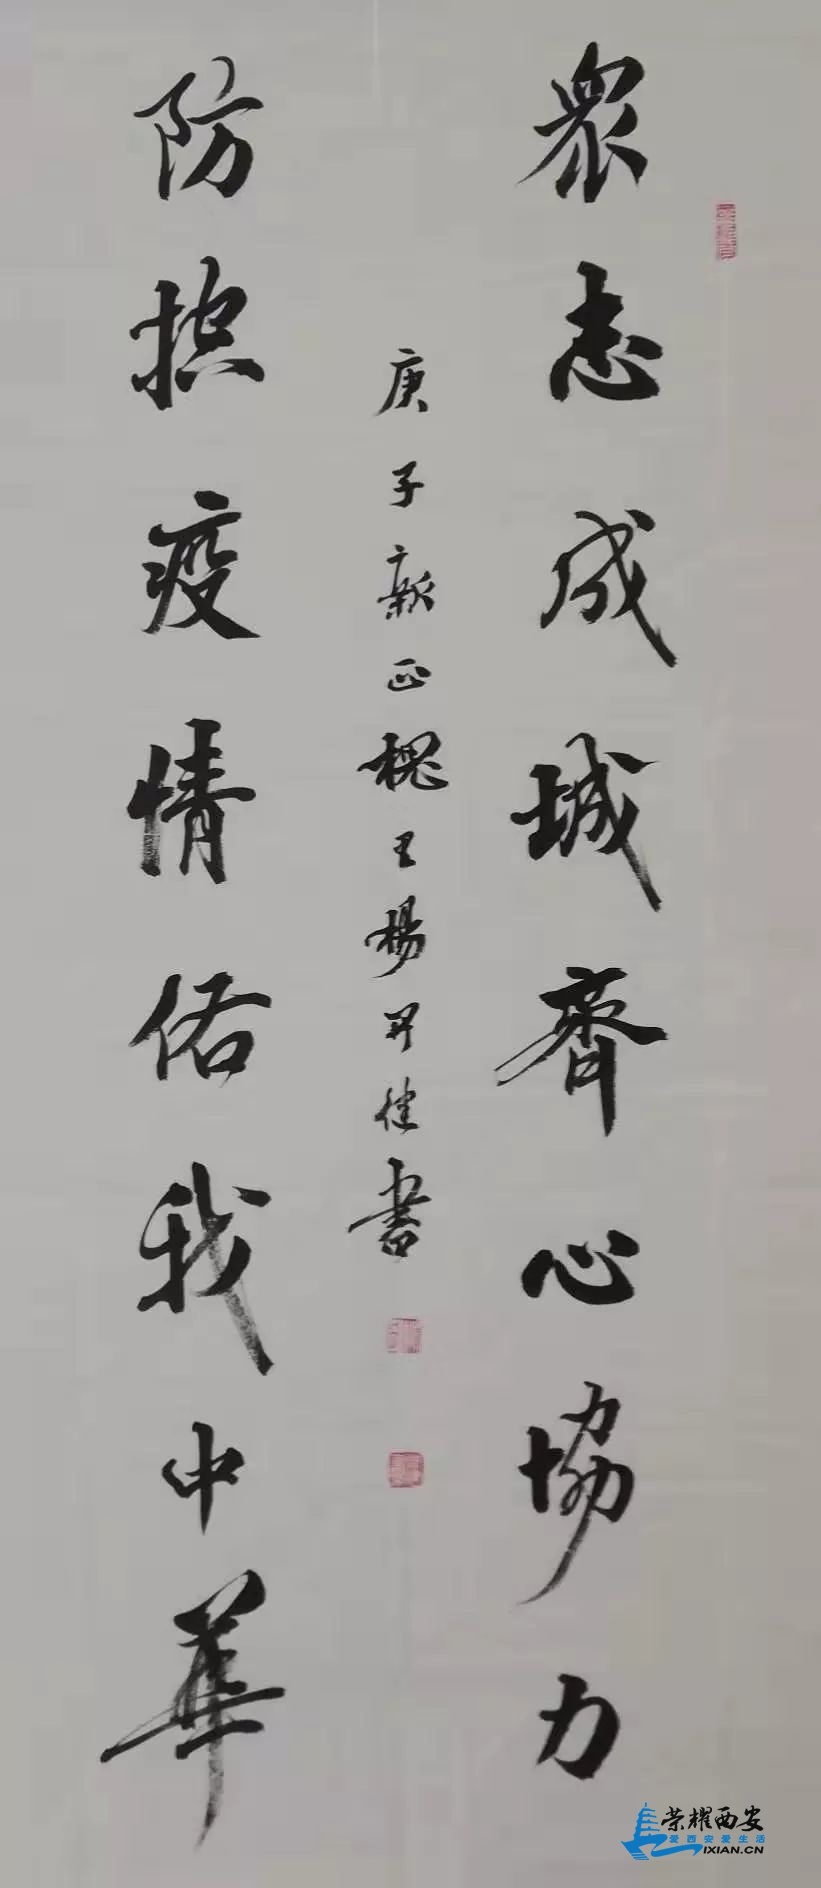 眾志成城齊心協力
防控疫情佑我中華
庚子新正槐王楊昇健書
荣耀西安
爱西安爱生活
IXIAN.CN